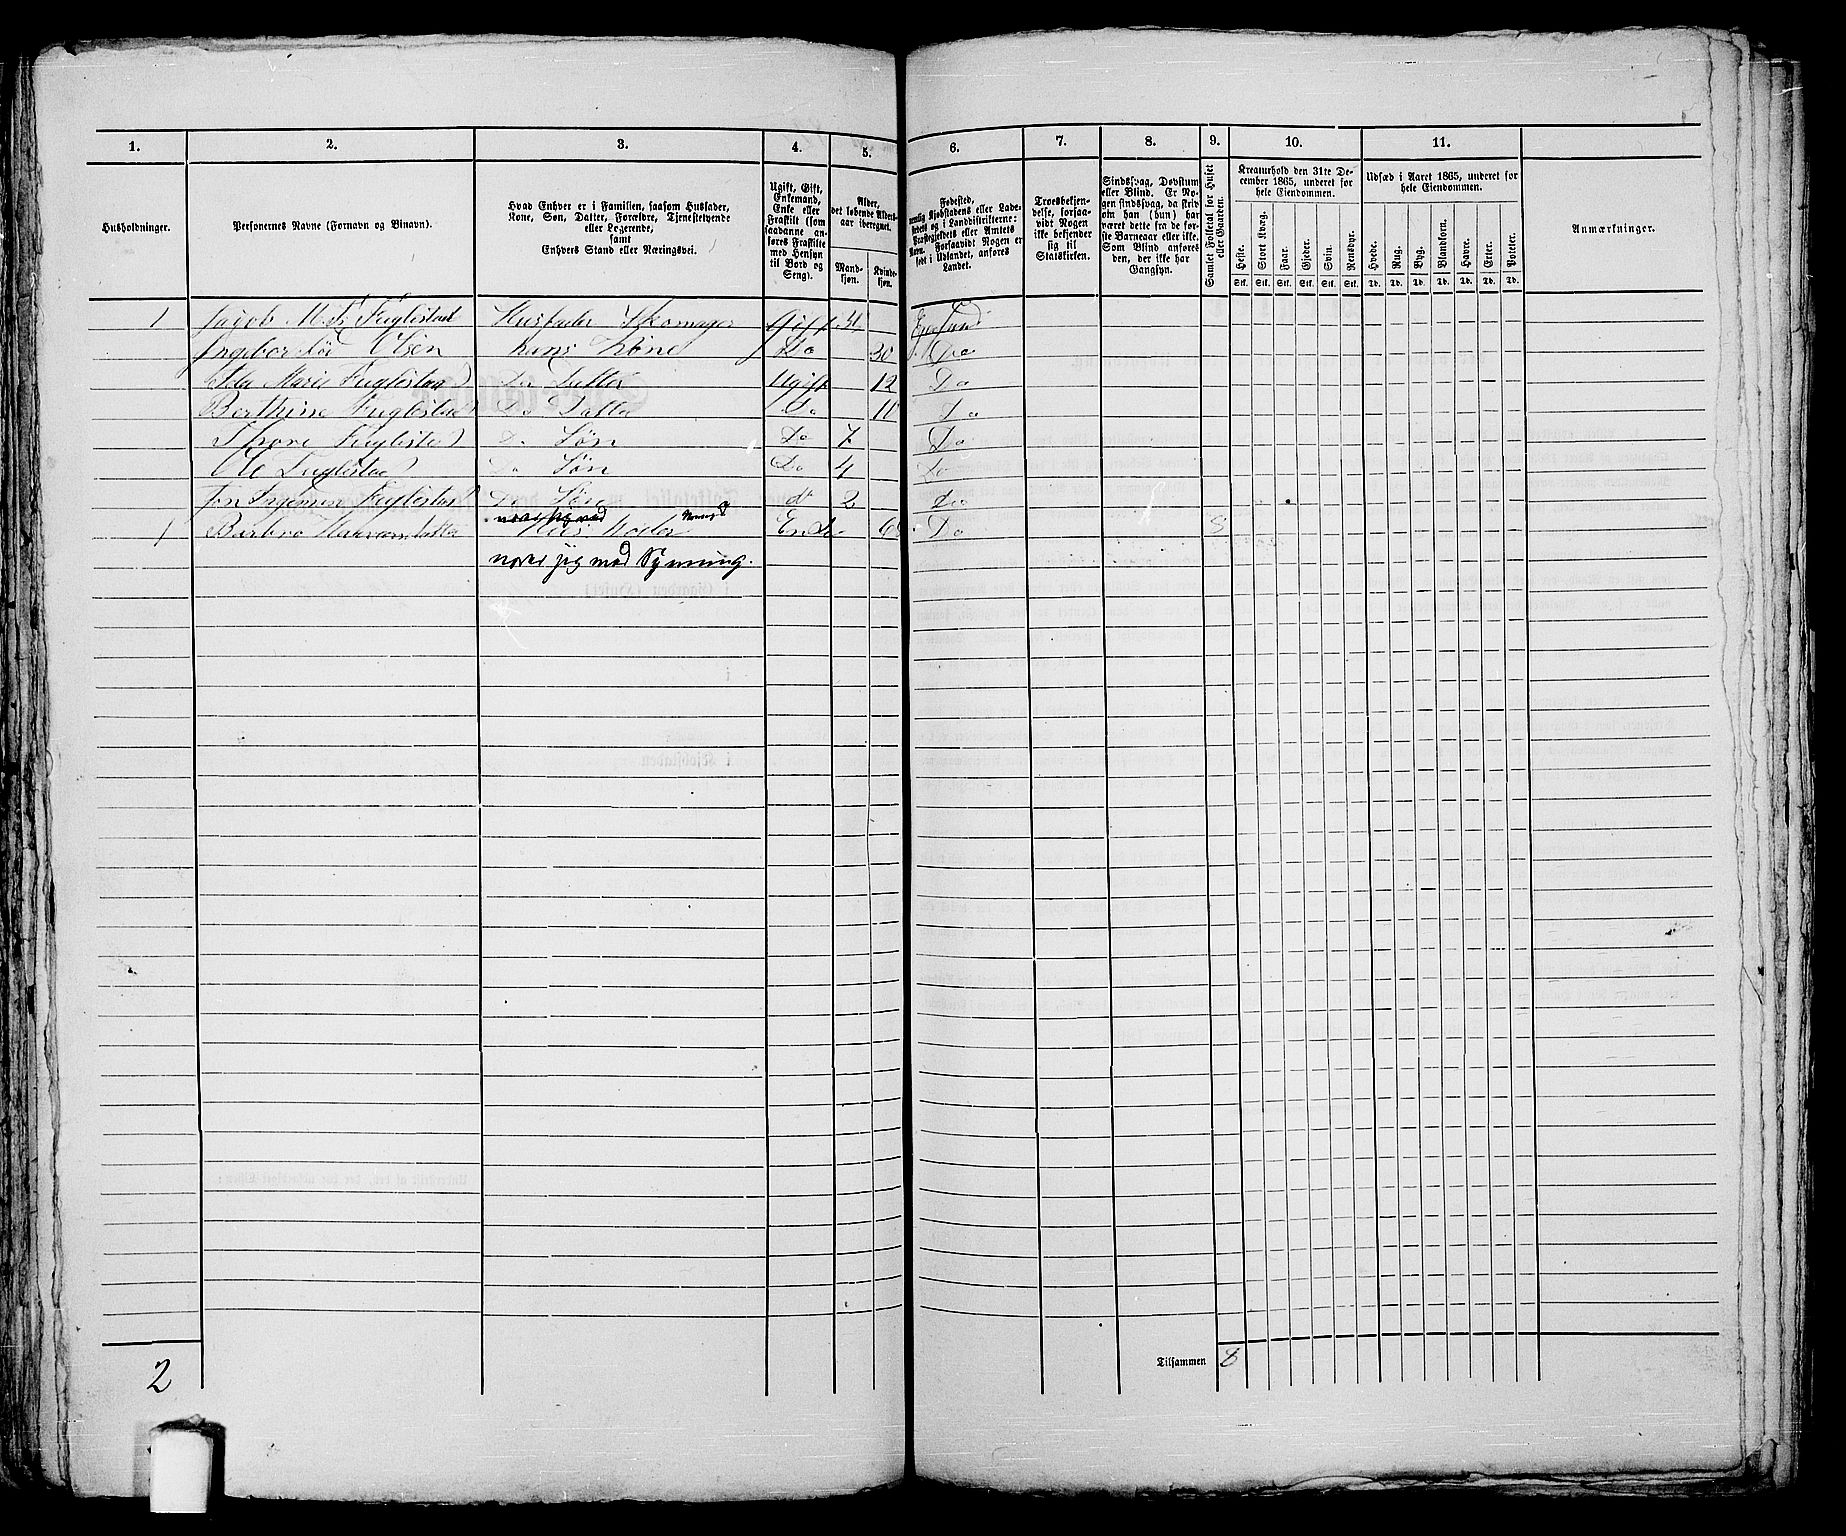 1. 2. 3. 4. 5. 6. 7. 8. 9. 10. 11.
Husholdninger.
Personernes Navne (Fornavn og Binavn).
Hvad Enhver er i Familien, saasom Husfader,
Kone, Søn, Datter, Forældre, Tjenestetyende
eller Logerende,
samt
Enhvers Stand eller Næringsvei.
Ugift, Gift,
Enkemand,
Enke eller
Fraskilt (som
saadanne an-
føres Fraskilte
med Hensyn
til Bord og
Seng).
Alder,
det løbende Alders-
aar iberegnet.
Mand-
kjøn.
Kvinde-
kjøn.
Fødested,
nemlig Kjøbstadens eller Lade-
stedets og i Landdistrikterne:
Præstegjeldets eller Amtets
Navn. Forsaavidt Nogen er
født i Udlandet, anføres
Landet.
Troesbekjen-
delse, forsaa-
vidt Nogen
ikke bekjender
sig til
Statskirken.
Sindssvag, Døvstum
eller Blind. Er No-
gen sindssvag, da skriv
om han (hun) har
været dette fra de før-
ste Barneaar eller ikke.
Som Blind anføres
den, der ikke har
Gangsyn.
Samlet Folketal for Huset
eller Gaarden.
Kreaturhold den 31te De-
cember 1865, underet for
hele Eiendommen.
Heste. Stort Kvæg. Faar. Gjeder. Svin. Rensdyr.
Stk. Stk. Stk. Stk. Stk. Stk.
Udsæd i Aaret 1865, underet for
hele Eiendommen.
Hvede. Rug. Byg. Blandkorn. Havre. Erter. Poteter.
Td. Td. Td. Td. Td. Td. Td.
Anmærkninger.
1 Jacob M. Fuglestad Husfader Skomager Gift
Olsen hans Kone Do 30 Do
Marie Fuglestad Do Datter Ugift 12 Do
Berthine Fuglestad Do Datter Do 11 Do
Thore Fuglestad Do Søn Do 7 Do
Ole Fuglestad Do Søn Do 4 Do
Fuglestad Do Søn do 2 Do
1 Barbro Moder Do 8
nærer sig med Spinning.
2
Tilsammen 8